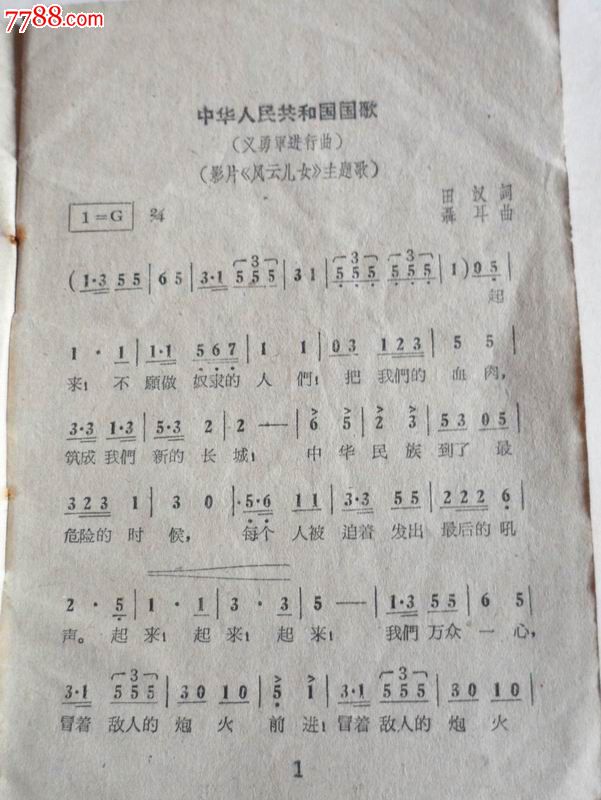 7788.com
中华人民共和国国歌
（义勇軍进行曲）
（影片《风云儿女》主题歌）
田 汉 詞
聶 耳 曲
1=G 2/4
(1·3 5 5 | 6 5 | 3·1 5 5 5 | 3 1 | 5 5 5 5 5 5 | 1) 0 5 |
起
1 · 1 | 1·1 5 6 7 | 1 1 | 0 3 1 2 3 | 5 5 |
来！ 不 願做 奴隶的 人 們！ 把 我們的 血 肉，
3·3 1·3 | 5·3 2 | 2 — | 6 5 | 2 3 | 5 3 0 5 |
筑成 我們 新的 长 城！ 中 华 民 族 到了 最
3 2 3 1 | 3 0 | 5·6 1 1 | 3·3 5 5 | 2 2 2 6 |
危险的 时 候， 每个 人被 迫着 发出 最后的 吼
2 · 5 | 1 · 1 | 3 · 3 | 5 — | 1·3 5 5 | 6 5 |
声。 起 来！ 起 来！ 起 来！ 我們 万众 一 心，
3·1 5 5 5 | 3 0 1 0 | 5 1 | 3·1 5 5 5 | 3 0 1 0 |
冒着 敌人的 炮 火 前 进！ 冒着 敌人的 炮 火
1